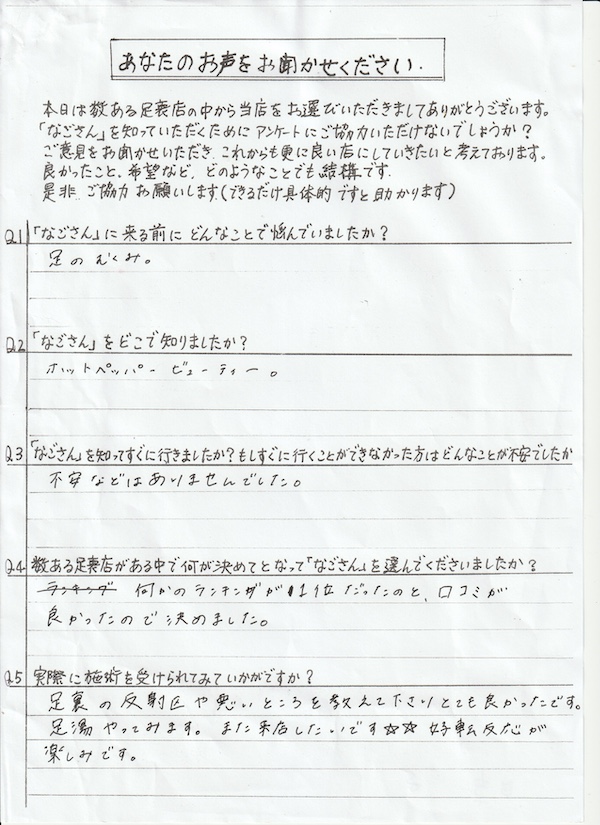 あなたのお声をお聞かせください.
本日は数ある足裏店の中から当店をお選びいただきましてありがとうございます。
「なごさん」を知っていただくためにアンケートにご協力いただけないでしょうか?
ご意見をお聞かせいただき、これからも更に良い店にしていきたいと考えております。
良かったこと、希望など、どのようなことでも結構です.
是非、ご協力お願いします。(できるだけ具体的ですと助かります)
Q1 「なごさん」に来る前にどんなことで悩んでいましたか?
足のむくみ。
Q2 「なごさん」をどこで知りましたか?
ホットペッパービューティー。
Q3 「なごさん」を知ってすぐに行きましたか?もしすぐに行くことができなかった方はどんなことが不安でしたか
不安などはありませんでした。
Q4 数ある足裏店がある中で何が決めてとなって「なごさん」を選んでくださいましたか?
ランキング 何かのランキングが1位だったのと、口コミが
良かったので決めました。
Q5 実際に施術を受けられてみていかがですか?
足裏の反射区や悪いところを教えて下さいとても良かったです。
足湯やってみます。また来店したいです☆☆ 好転反応が
楽しみです。